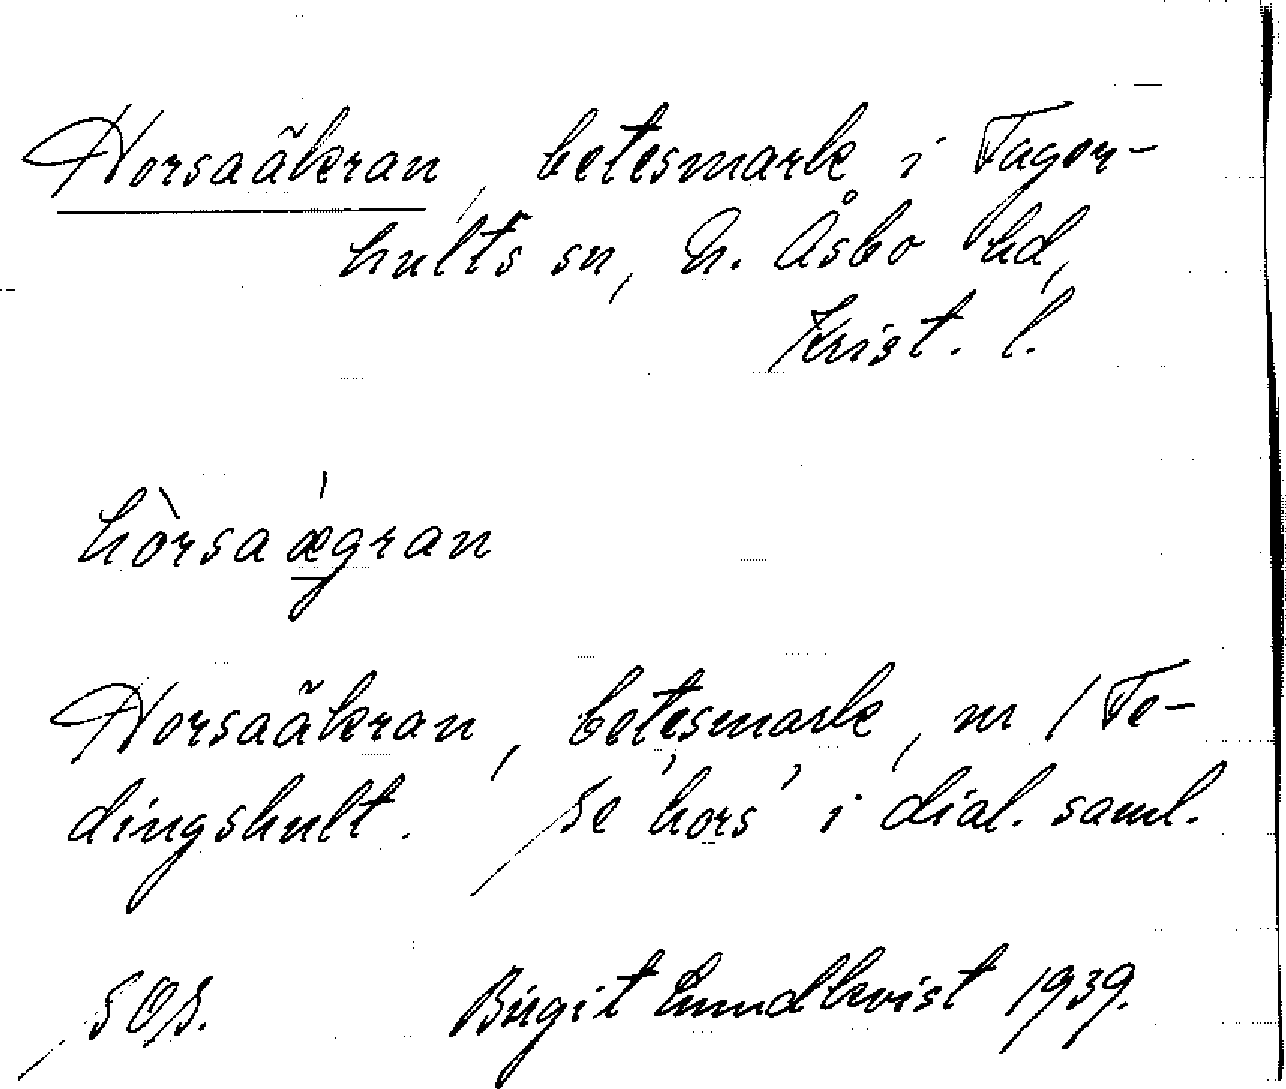 Horsaäkran, betesmark i Fager-
hults sn, N. Åsbo hd,
Krist. l.
hòrsaǽgran
Horsaäkran, betesmark, nr 1 Fe-
dingshult. Se 'hors' i dial. saml.
Birgit Lundkvist 1939.